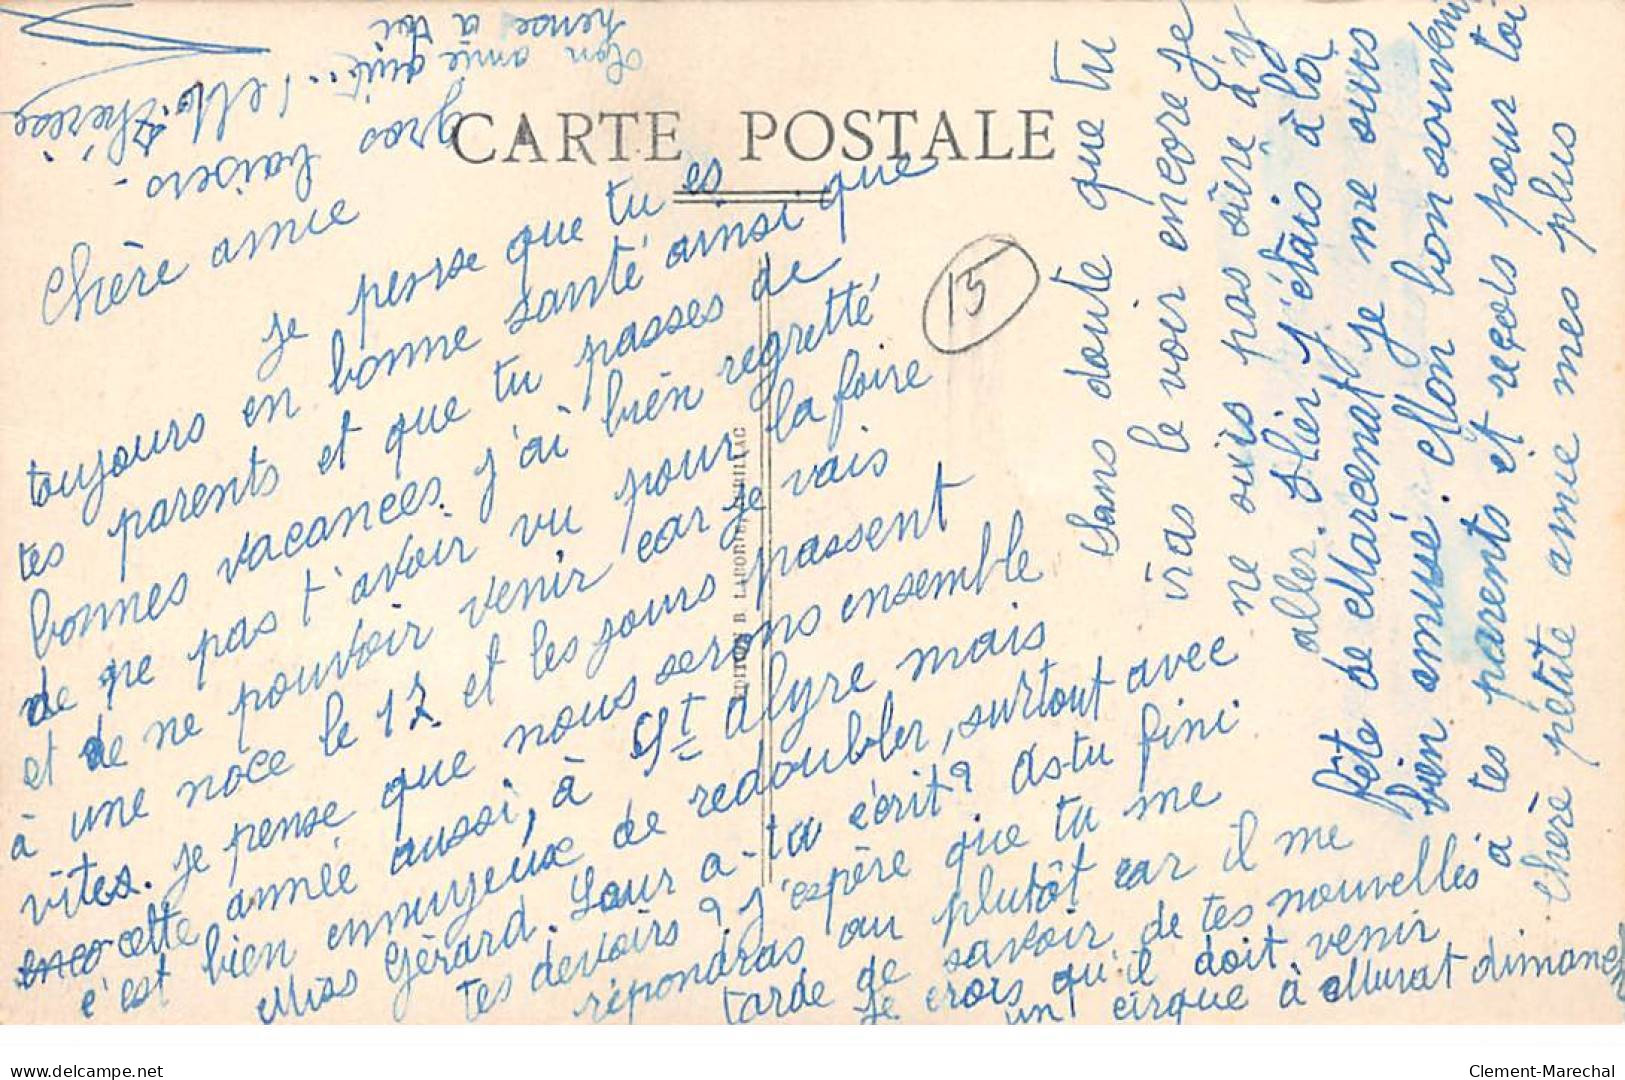 CARTE POSTALE
Chère amie
je pense que tu es
toujours en bonne santé ainsi que
tes parents et que tu passes de
bonnes vacances. j'ai bien regretté
de ne pas t'avoir vu pour la foire
et de ne pouvoir venir car je vais
à une noce le 12 et les jours passent
vites. je pense que nous serons ensemble
cette année aussi, à St alyre mais
c'est bien ennuyeux de redoubler, surtout avec
Miss Gérard. Soeur a-t-elle écrit? As-tu fini
tes devoirs? j'espère que tu me
répondras au plutôt car il me
tarde de savoir de tes nouvelles
Je crois qu'il doit venir
un cirque à Murat dimanche
Sans doute que tu
iras le voir encore je
ne suis pas sûre d'y
aller. Hier j'étais à la
fête de Marcenat je me suis
bien amusé. Mon bon souvenir
à tes parents et reçois pour toi
chère petite amie mes plus
gros baisers.
Ton amie qui
pense à toi
Thérèse
15
EDITION B. LABORIE, AURILLAC
delcampe.net
Clement-Marechal